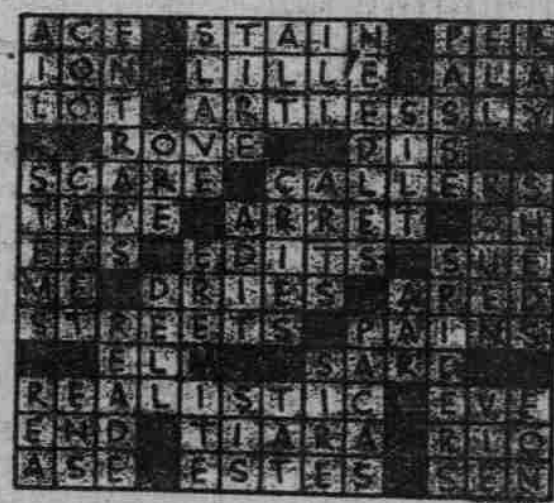 ACE STAIN PEL
ION LILLE ALA
LOT ARTLESSLY
ROVE DIS
SCARE CALLERS
TAPE ARRET OH
EDITS SUE
ME DRIES APED
STREETS PAINS
ELM SARD
REALISTIC EVE
END TIARA RIO
ASE ESTES SEN